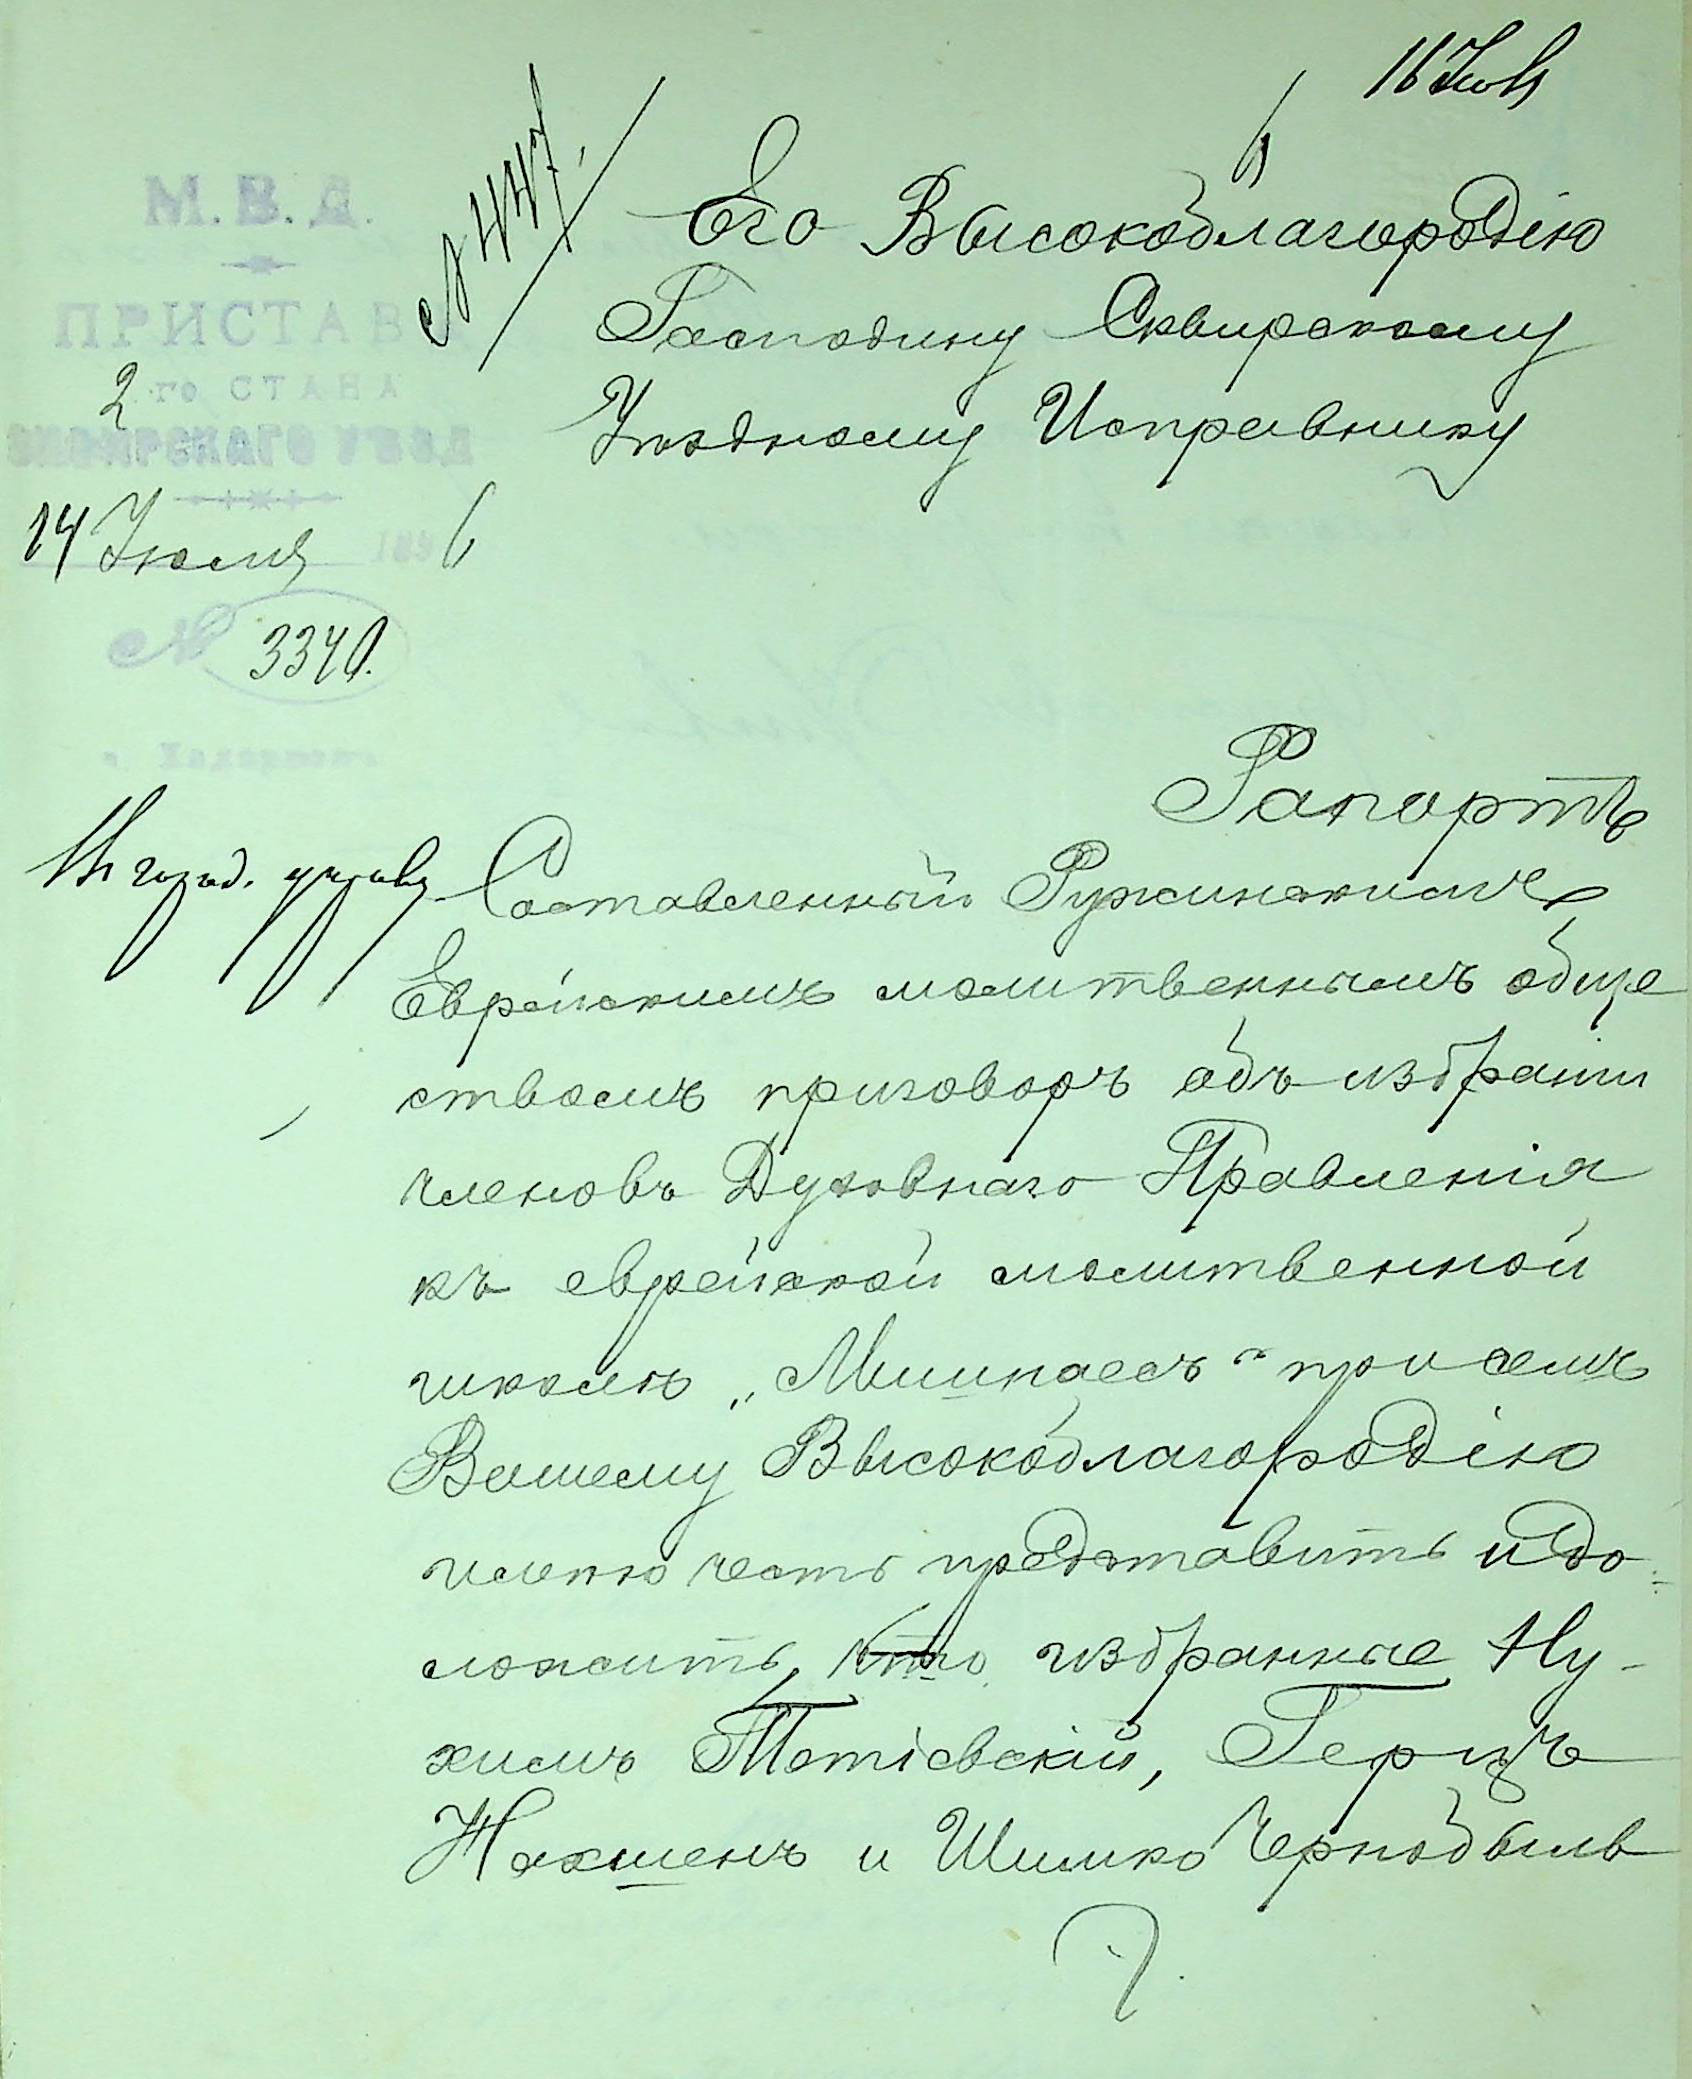 16 Юл
№ 4447.
М. В. Д.
ПРИСТАВ
2 го СТАНА
СКВИРСКАГО УѢЗД
14 Юля 1896
№ 3340.
Его Высокоблагородію
Господину Сквирскому
Уѣздному Исправнику
Рапортъ
Составленный Ружинскимъ
Еврейскимъ молитвеннымъ обще
ствомъ приговоръ объ избраніи
членовъ Духовнаго Правленія
къ еврейской молитвенной
школѣ „Мишнаесъ“ при семъ
Вашему Высокоблагородію
имѣю честь представить и до-
ложить, что избранные Ну-
химъ Тетіевскій, Герцъ
Нахшенъ и Шимко Чернобыль